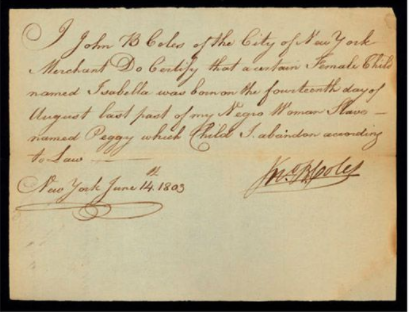 I John B Coles of the City of New York
Merchant Do Certify that a certain Female Child
named Isabella was born on the fourteenth day of
August last past of my Negro Woman Slave –
named Peggy which Child I abandon according
to Law –
New York June 14th. 1803
Jno B Coles